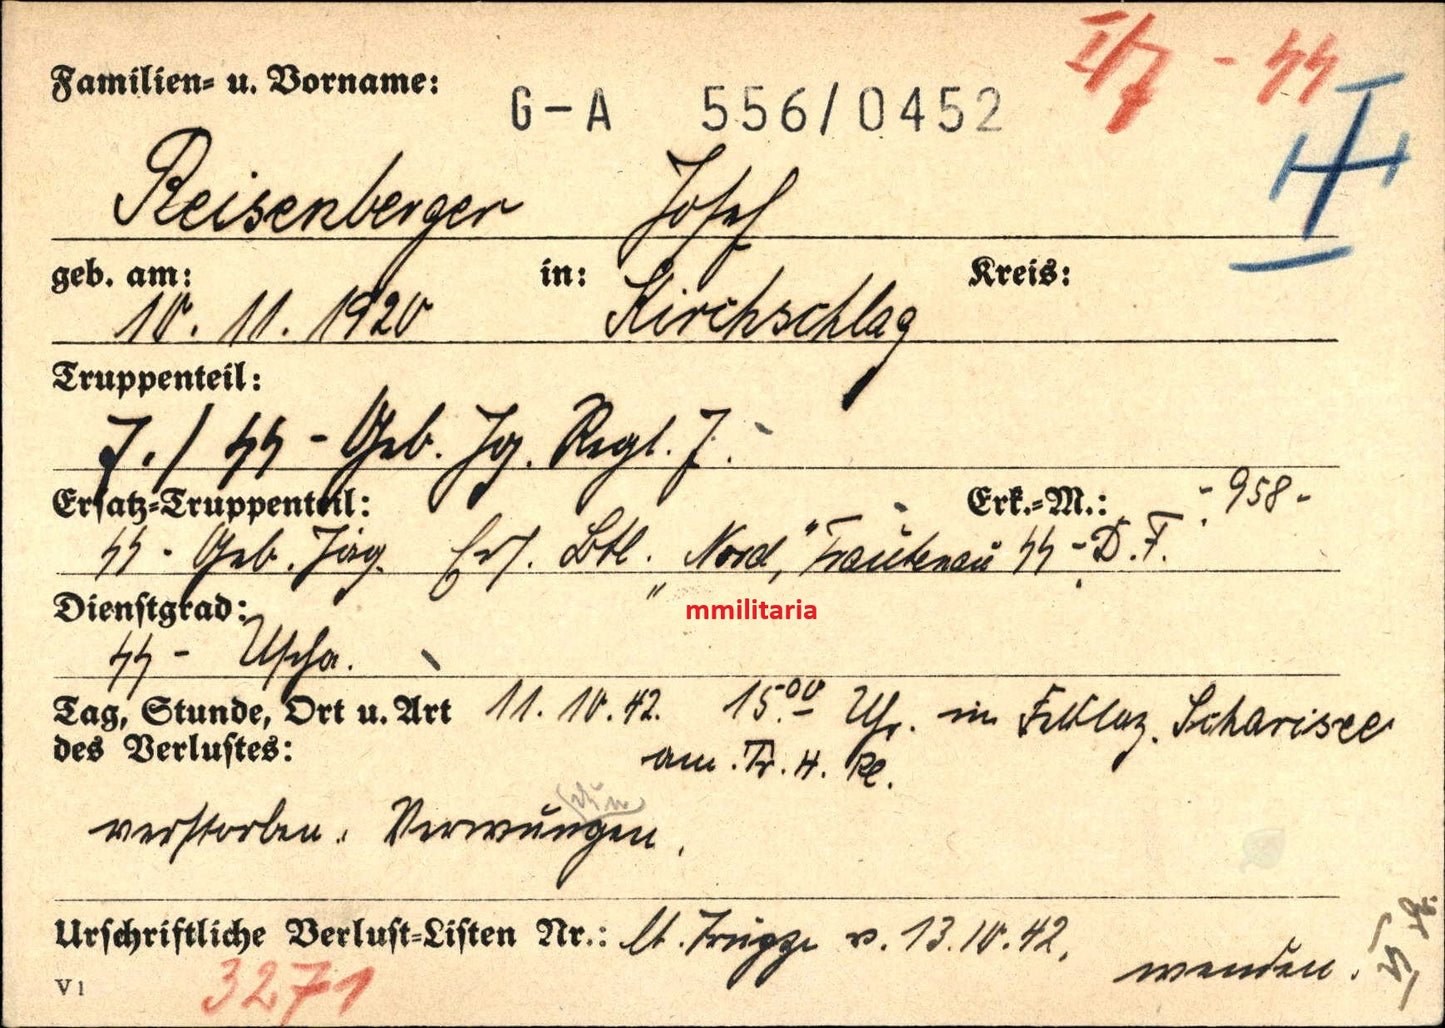 I/7 - SS
Familien- u. Vorname:
G-A 556/0452
Reisenberger Josef
geb. am: in: Kreis:
10. 11. 1920 Kirchschlag
Truppenteil:
7./ SS - Geb. Jg. Regt. 7.
Ersatz-Truppenteil: Erk.-M.: - 958 -
SS - Geb. Jäg. Ers. Btl. "Nord," Trautenau SS - D.T.
Dienstgrad:
mmilitaria
SS - Uscha.
Tag, Stunde, Ort u. Art 11. 10. 42. 15.00 Uhr. in Feldlaz.
des Verlustes: am Tr. H. Pl.
verstorben. Verwungen.
Urschriftliche Verlust-Listen Nr.: lt. Truppe v. 13.10.42.
wenden.
V1 3271